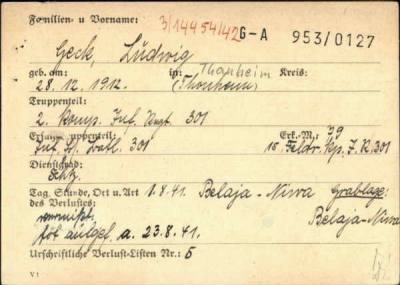 Familien- u Vorname: 3/14454/42 G-A 953/0127
Geck, Ludwig
geb. am: in: Thanheim Kreis:
28.12.1912. (Thonheim)
Truppenteil:
2. Komp. Inf. Regt. 301
Ersatztruppenteil: Erk.-M.: 79
Inf. Ers. Batl. 301 15 Feldr. Kp. J.R. 301
Dienstgrad:
Schtz.
Tag, Stunde, Ort u. Art 1.8.41. Belaja-Niwa Grablage:
des Verlustes: Belaja-Niwa
vermißt
tot aufgef. a. 23.8.41.
Urschriftliche Verlust-Listen Nr.: 5
V 1